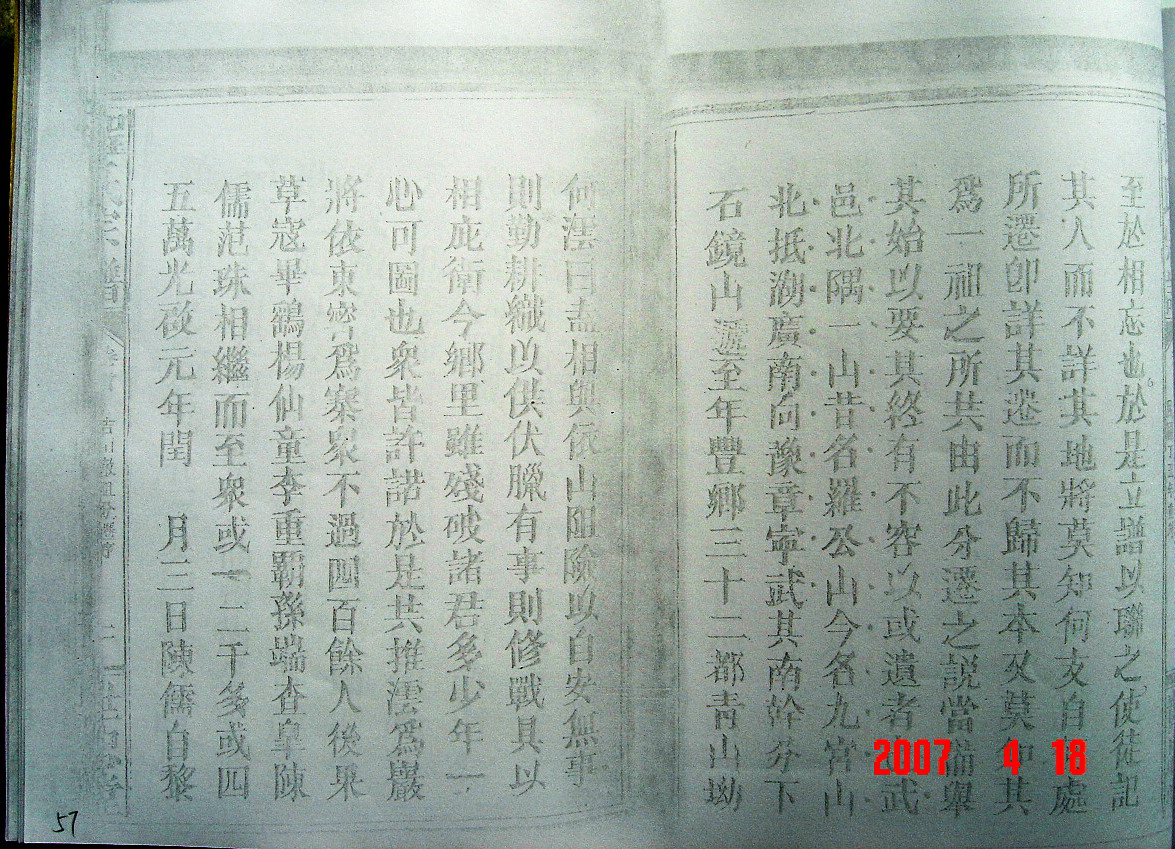 至於相忘也於是立譜以聯之使徒記
其人而不詳其地將莫知何支自何處
所遷卽詳其遷而不歸其本又莫知其
爲一祖之所共由此分遷之說當備舉
其始以要其終有不容以或遺者武
邑北隅一山昔名羅公山今名九宮山
北抵湖廣南向豫章寧武其南幹分下
石鏡山遞至年豐鄉三十二都靑山坳
何澐曰盍相與依山阻險以自安無事
則勤耕織以供伏臘有事則修戰具以
相庇衛今鄉里雖殘破諸君多少年一
心可圖也衆皆許諾於是共推澐爲巖
將依東嵒爲寨衆不過四百餘人後果
草寇畢鷂楊仙童李重霸孫端查皐陳
儒范珠相繼而至衆或一二千多或四
五萬光啟元年閏 月三日陳儒自黎
57
2007 4 18